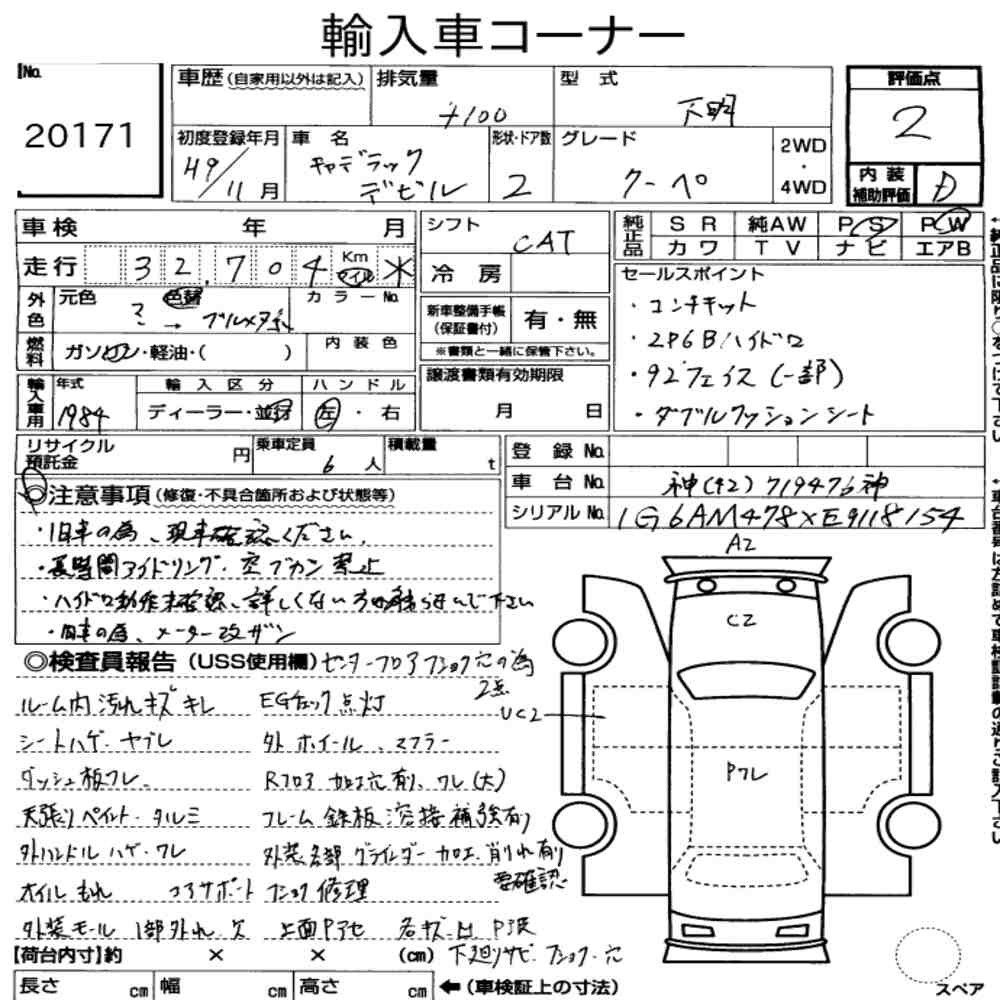 輸入車コーナー
No.
20171
車歴(自家用以外は記入)
排気量
4100
型 式
不明
初度登録年月
H9/11月
車 名
キャデラック
デビル
形状・ドア数
2
グレード
クーペ
2WD
・
4WD
評価点
2
内装
補助評価
D
車検 年 月
走行 32,704 Km マイル *
外色
元色 色替 カラーNo.
? → ブルメタ系
燃料
ガソリン・軽油・( )
内装色
輸入車用
年式
1984
輸入区分
ディーラー・並行
ハンドル
左・右
シフト
CAT
冷房
新車整備手帳
(保証書付)
有・無
※書類と一緒に保管下さい。
譲渡書類有効期限
月 日
純正品
SR 純AW PS PW
カワ TV ナビ エアB
セールスポイント
・コンチキット
・2P6Bハイドロ
・92'フェイス(一部)
・ダブルクッションシート
リサイクル
預託金
円
乗車定員
6人
積載量
t
登録No.
車台No. 神(42)719476神
シリアルNo. 1G6AM478XE9118154
◎注意事項(修復・不具合箇所および状態等)
・旧車の為、現車確認ください。
・長時間アイドリング、空ブカシ禁止
・ハイドロ動作未確認、詳しくない方は触らないで下さい
・旧車の為、メーター改ザン
◎検査員報告(USS使用欄)
センターフロアフショク穴の為
2点
ルーム内汚れキズキレ
シートハゲ・ヤブレ
ダッシュ板ワレ
天張りペイント・タルミ
外ハンドルハゲ・ワレ
オイルもれ コアサポート
外装モール1部外れ、欠
EGチェック点灯
外ホイール、マフラー
Rフロア加工穴有、ワレ(大)
フレーム鉄板溶接補強有
外装各部グラインダー加工、削れ有
要確認
フショク修理
上面Pアセ 各キズ凹P沢
下廻りサビ、フショク穴
A2
C2
UC2
Pワレ
スペア
【荷台内寸】約 × × (cm)
長さ cm 幅 cm 高さ cm
←(車検証上の寸法)